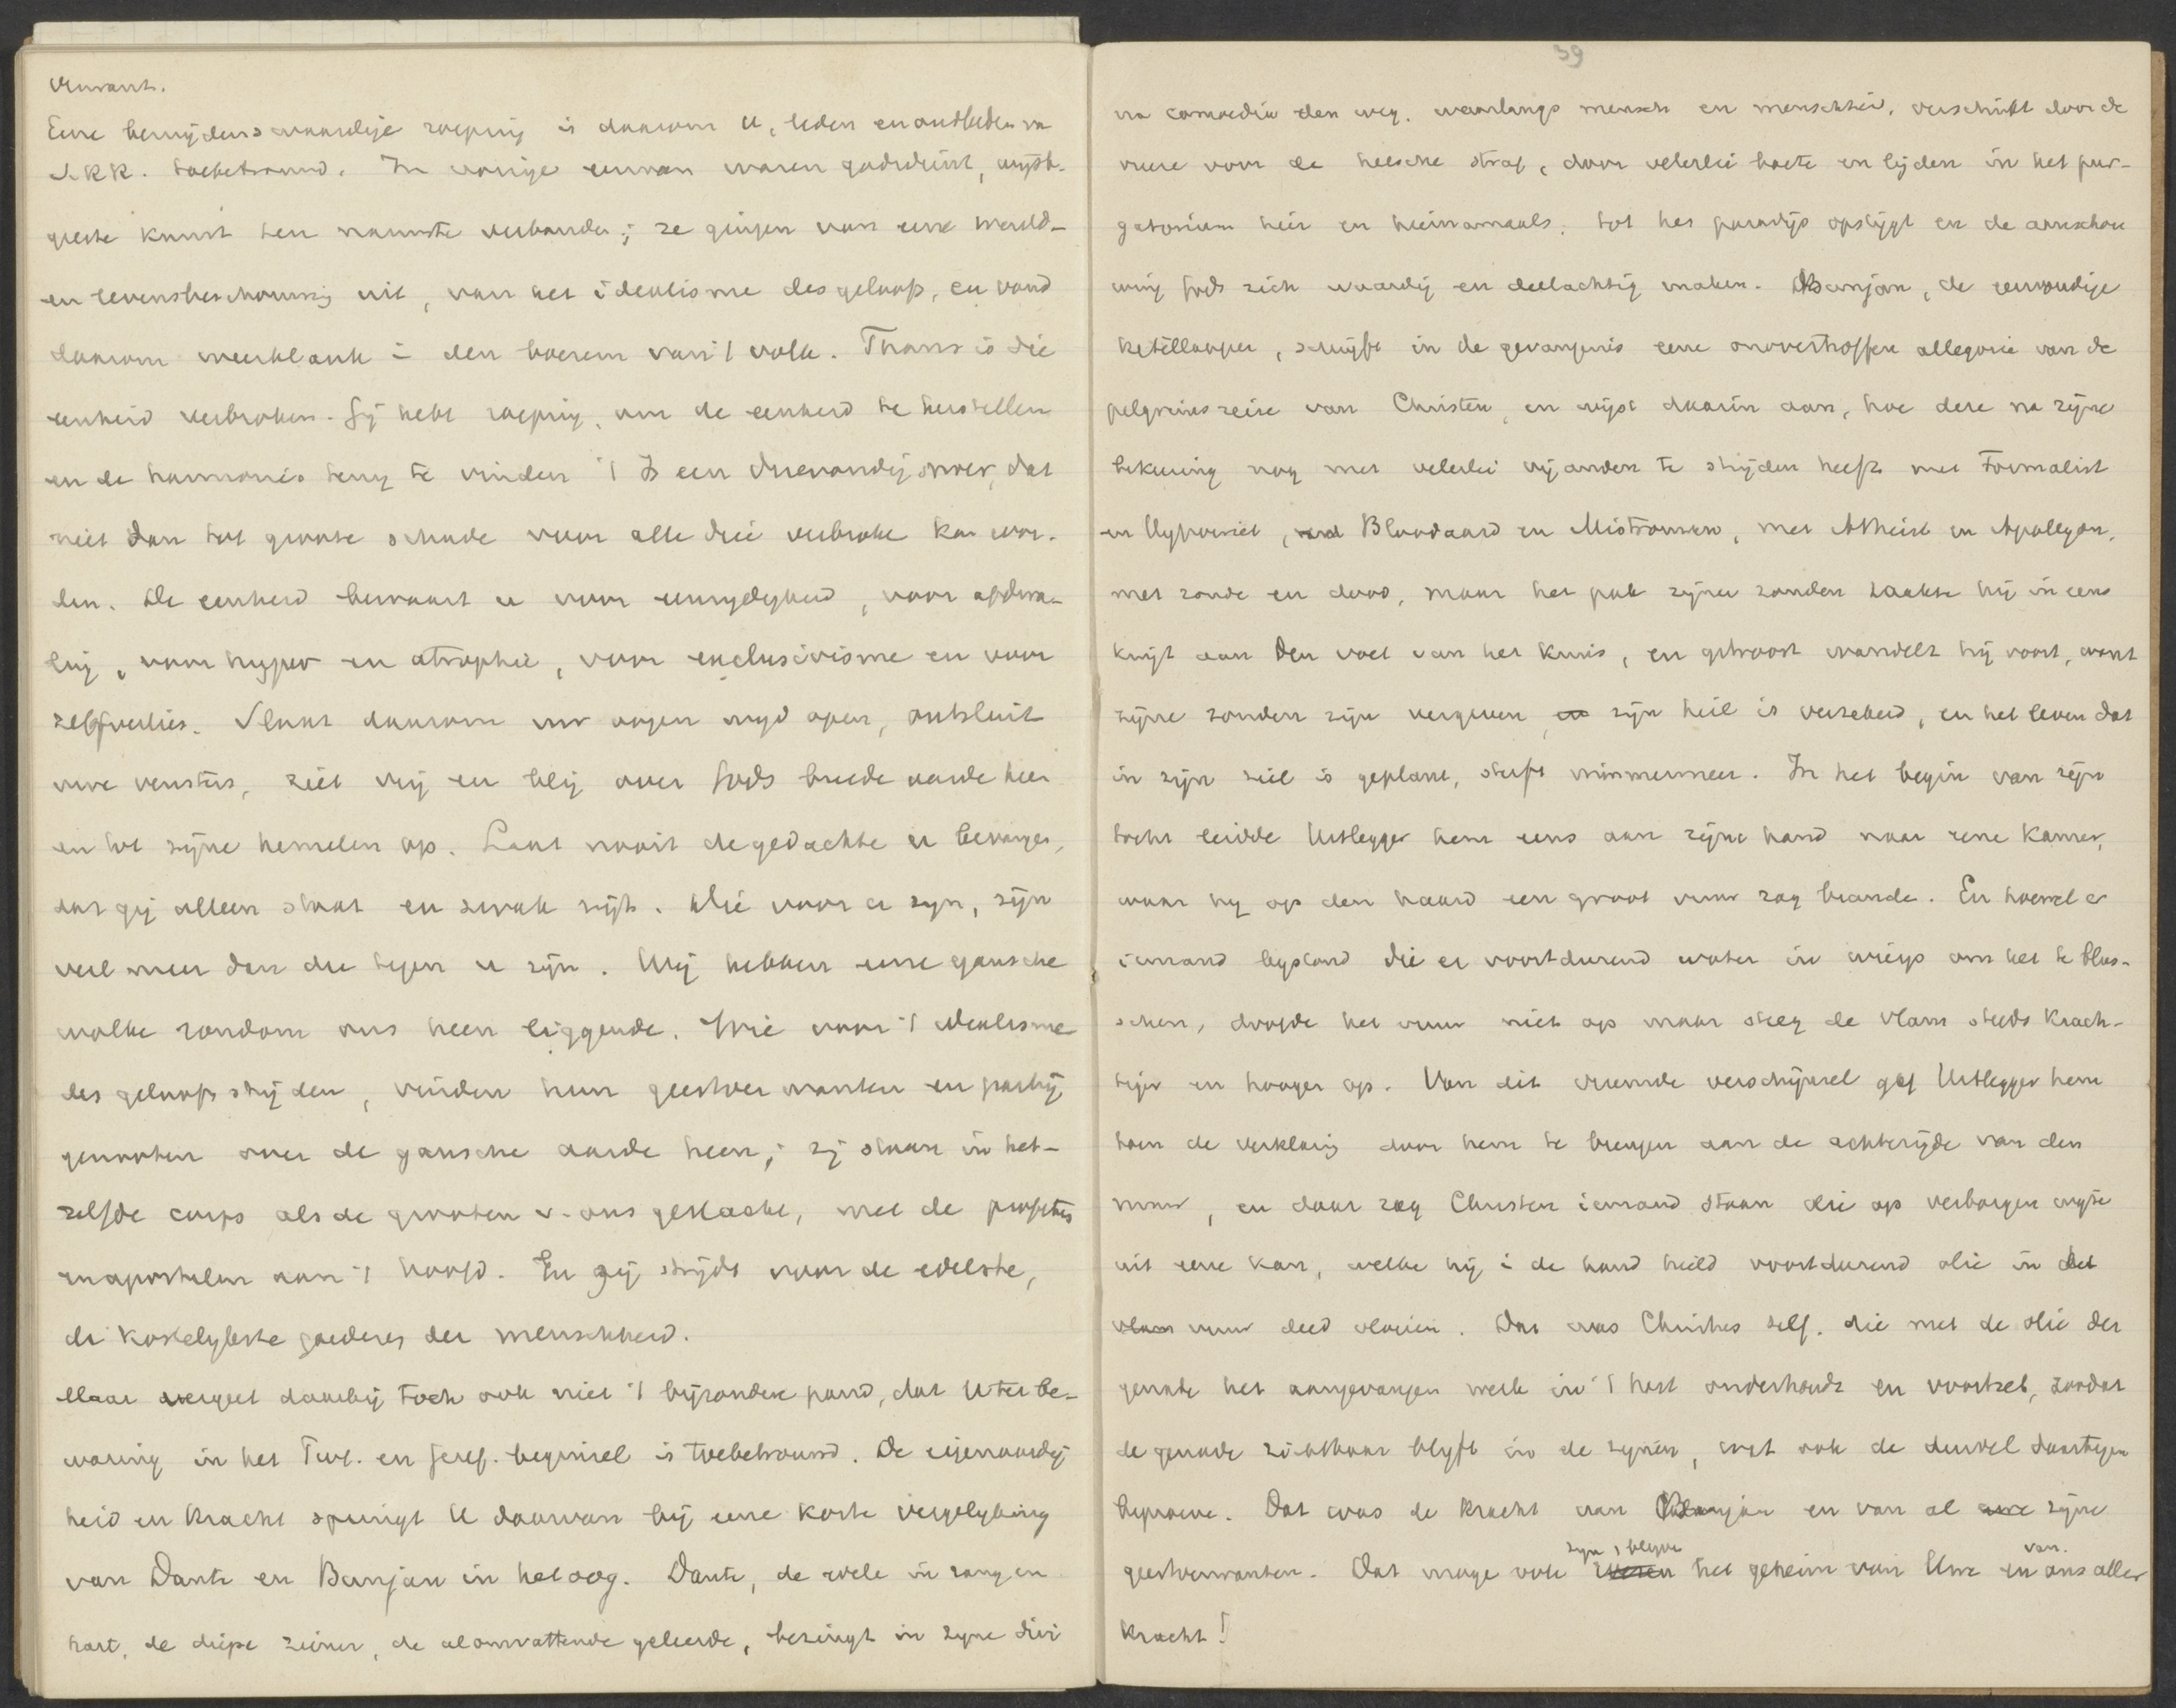 verwant.
Eene benijdenswaardige roeping is daarom U, leden en oudleden van
S.R.R. toebetrouwd. In vorige eeuwen waren godsdienst, wijsb.
geerte kunst ten nauwste verbonden; ze gingen van eene wereld-
en levensbeschouwing uit, van het idealisme des geloofs, en vond
daarom weerklank i den boezem van 't volk. Thans is die
eenheid verbroken. Gij hebt roeping, om de eenheid te herstellen
en de harmonie terug te vinden 't Is een drievoudig snoer, dat
niet dan tot groote schade voor alle drie verbroke kan wor-
den. De eenheid bewaart u voor eenzijdigheid, voor afdwa-
ling, voor hyper en atrophie, voor exclusivisme en voor
zelfverlies. Slaat daarom uw oogen wijd open, ontsluit
uwe vensters, ziet vrij en blij over Gods breede aarde heen
en tot zijne hemelen op. Laat nooit de gedachte u bevangen,
dat gij alleen staat en zwak zijt. Die voor u zyn, zijn
veel meer dan die tegen u zijn. Wij hebben eene gansche
wolke rondom ons heen liggende. Wie voor 't idealisme
des geloofs strijden, vinden hun geestverwanten en partij
genooten over de gansche aarde heen; zij staan in het-
zelfde corps als de grooten v. ons geslacht, met de profetes
en apostelen aan 't hoofd. En gij strijdt voor de edelste,
de kostelykste goederen der menschheid.
Maar vergeet daarbij toch ook niet 't bijzondere pand, dat U ter be-
waring in het Twl. en geref. beginsel is toebetrouwd. De eigenaardig
heid en kracht springt U daarvan bij eene korte vergelyking
van Dante en Bunjan in het oog. Dante, de edele in zang en
hart, de diepe ziener, de alomvattende geleerde, bezingt in zyne divi
39
na comoedia den weg, waarlangs mensch en menschheid, verschrikt door de
vreeze voor de helsche straf, door velerlei boete en lijden in het pur-
gatorium hier en hiernamaals, tot het paradijs opstijgt en de aanschou
wing Gods zich waardig en deelachtig maken. Bunjan, de eenvoudige
ketellapper, schrijft in de gevangenis eene onovertroffen allegorie van de
pelgrimsreize van Christen, en wijst daarin aan, hoe deze na zijne
bekeering nog met velerlei vijanden te strijden heeft met Formalist
en Hypocriet, Bloodaard en Mistrouwen, met Atheist en Apollyon,
met zonde en dood, maar het pak zijner zonden raakte hij in eens
kwijt aan den voet van het kruis, en getroost wandelt hij voort, want
zijne zonden zijn vergeven, en zijn heil is verzekerd, en het leven dat
in zijn ziel is geplant, sterft nimmermeer. In het begin van zijn
tocht leidde Uitlegger hem eens aan zijne hand naar eene kamer,
waar hy op den haard een groot vuur zag brande. En hoewel er
iemand bystond die er voortdurend water in wierp om het te blus-
schen, doofde het vuur niet op maar steeg de vlam steeds krach-
tiger en hooger op. Van dit vreemde verschijnsel gaf Uitlegger hem
toen de verklaring door hem te brengen aan de achterzijde van den
muur, en daar zag Christen iemand staan die op verborgen wijze
uit eene kan, welke hij i de hand hield voortdurend olie in het
vlam vuur deed vloeien. Dat was Christus zelf, die met de olie der
genade het aangevangen werk in 't hart onderhoudt en voortzet, zoodat
de genade zichtbaar blyft in de zynen, wat ook de duivel daartegen
beproeve. Dat was de kracht van Bunjan en van al zijne
geestverwanten. Dat moge ook zijn, blijve het geheim van Uwe en van ons aller
kracht!